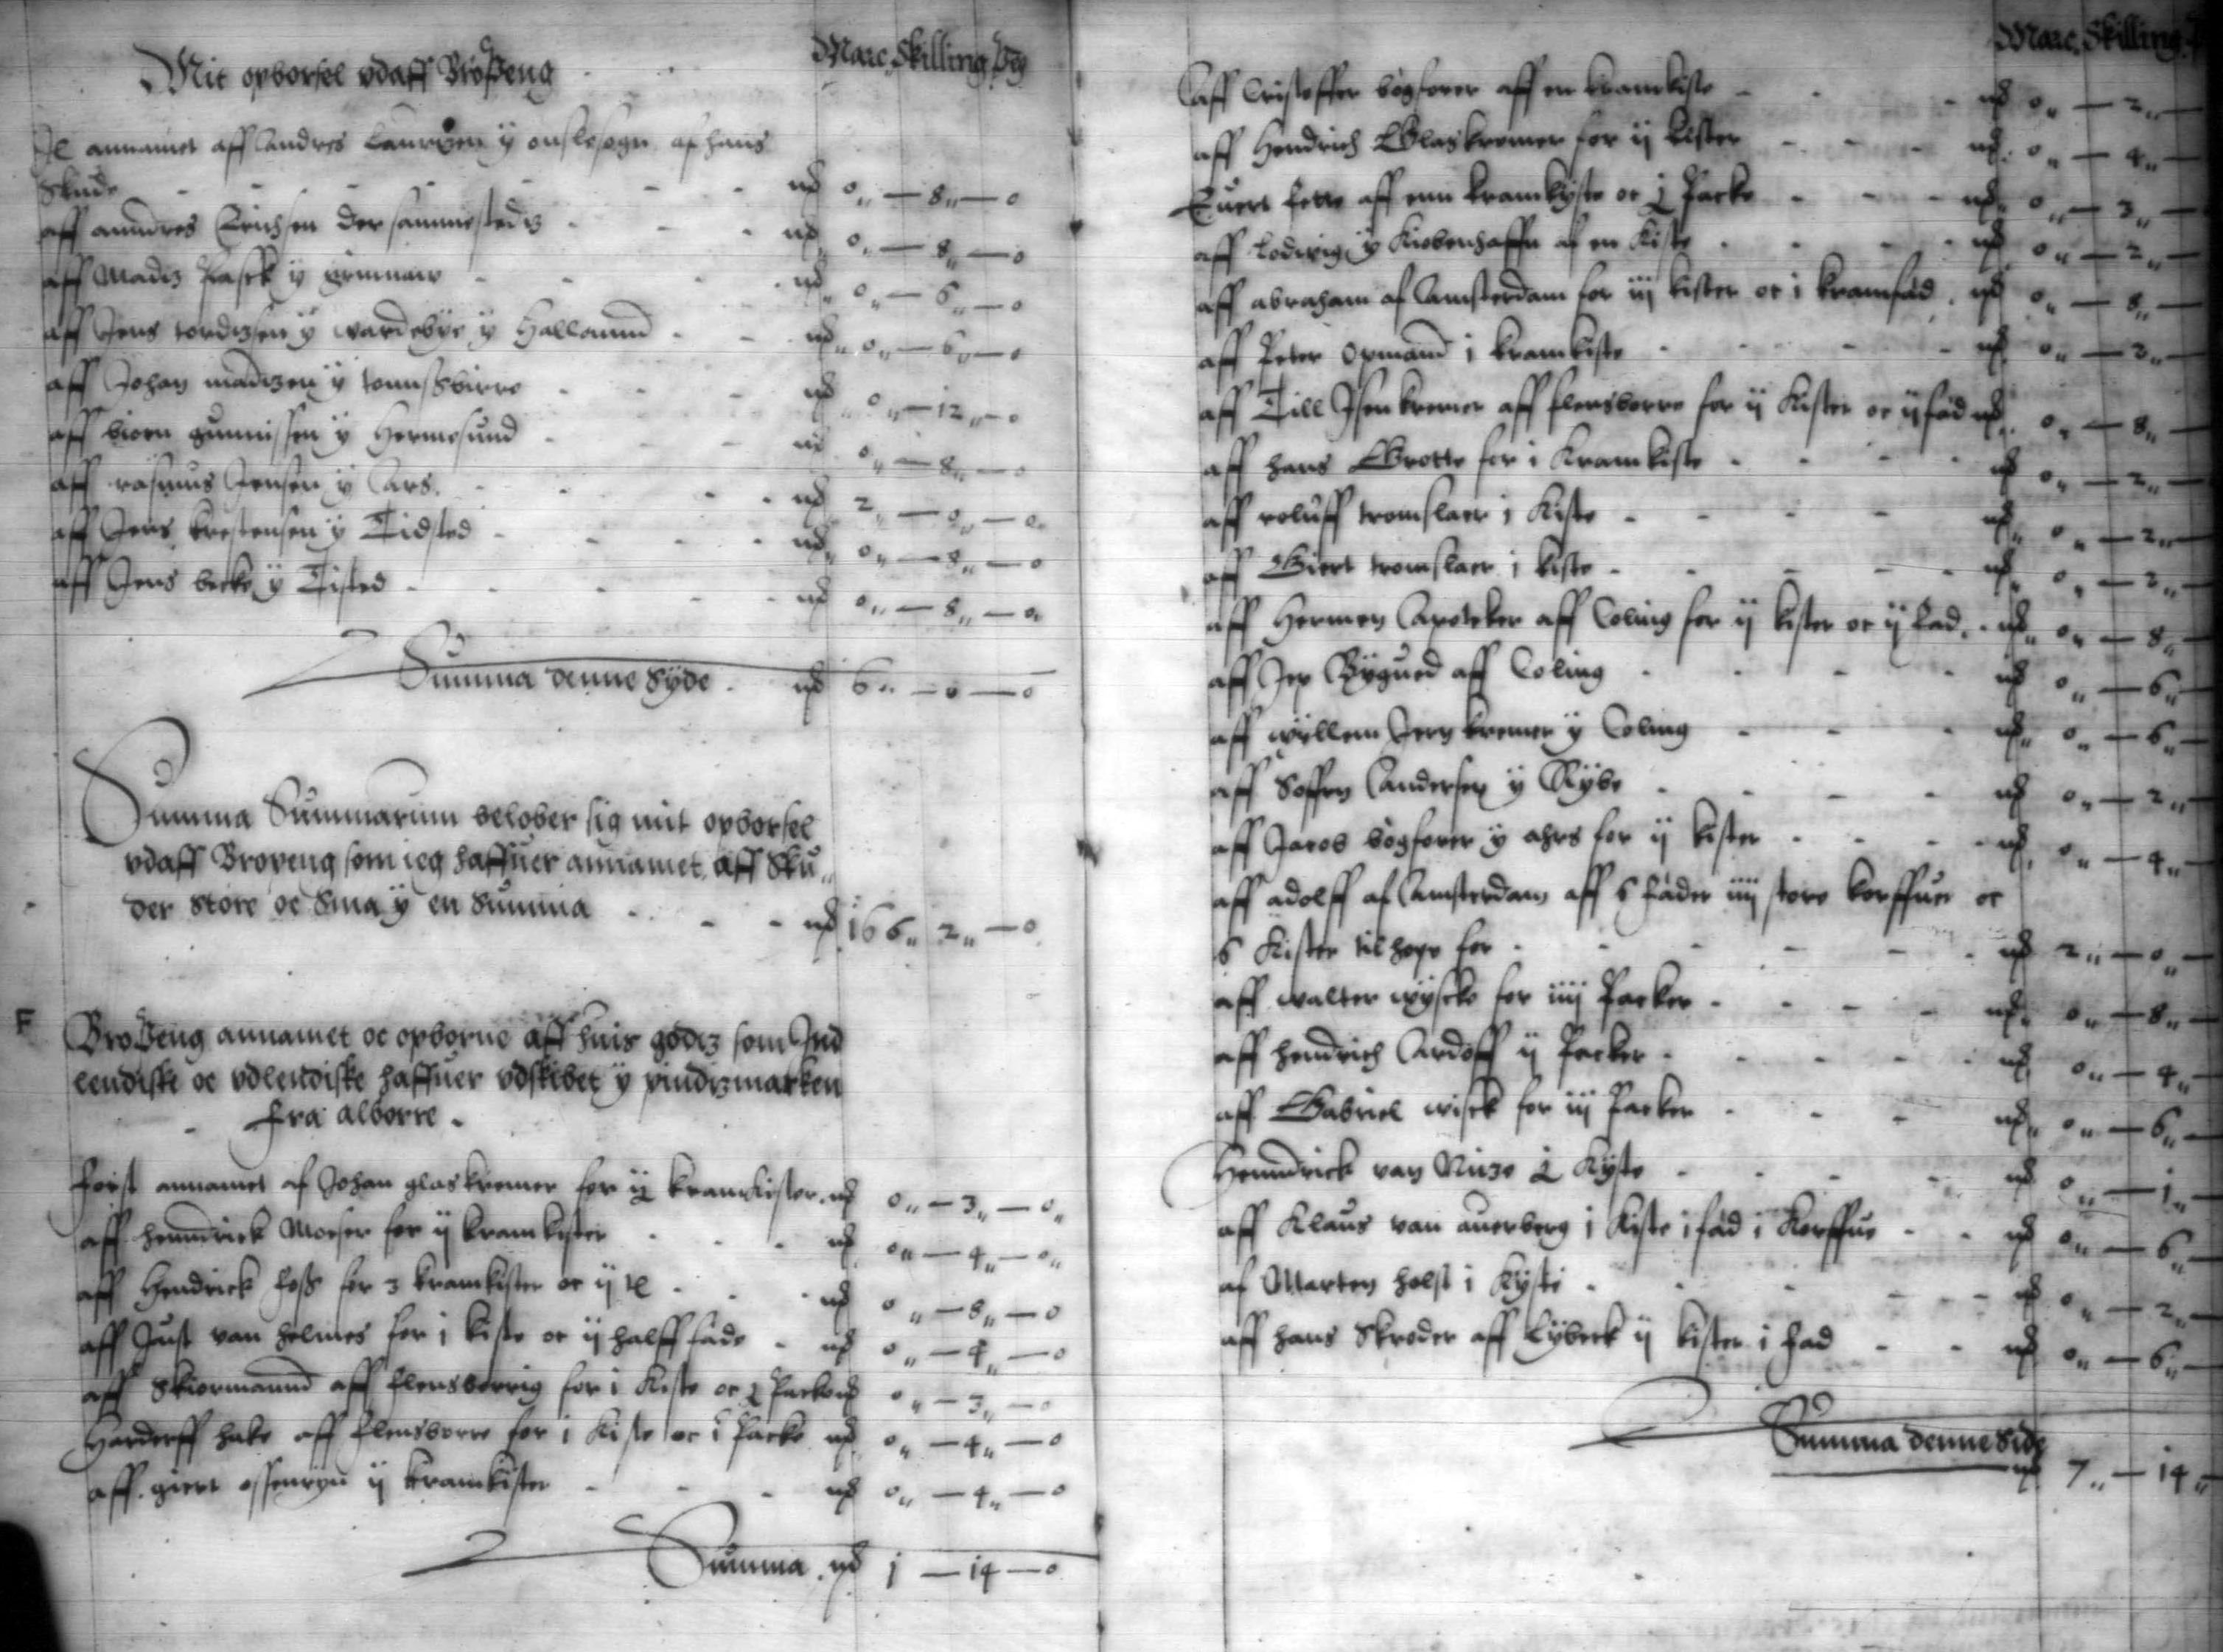 Mit opborsel vdaff Bropeng
Marc Skilling Peg
It annamet aff Andres Lauritzen ÿ onslesogn af hans
Skude - - - - - - - m͞ꝛ 0 — 8 — 0
aff anndres Erichsen der sammestedtz m͞ꝛ 0 — 8 — 0
aff Madtz Pasck ÿ m͞ꝛ 0 — 6 — 0
aff Jens tordtzsen ÿ wardebÿe ÿ Hallannd m͞ꝛ 0 — 6 — 0
aff Johan madtzen ÿ m͞ꝛ 0 — 12 — 0
aff biorn gunnissen ÿ Hermesund m͞ꝛ 0 — 8 — 0
aff rasmus Jensen ÿ Ars m͞ꝛ 2 — 0 — 0
aff Jens krestensen ÿ Tidsted m͞ꝛ 0 — 8 — 0
aff Jens becke ÿ Tisted m͞ꝛ 0 — 8 — 0
Summa denne Sÿde m͞ꝛ 6 — 0 — 0
Summa Summarum belober sig mit opborsel
vdaff Bropeng som ieg haffuer annamet aff Sku
der store oc Sma ÿ en Summa m͞ꝛ 166 2 — 0
F
Bropeng annamet oc opborne aff huis godtz som Ind
lendiske oc vdlendiske haffuer vdskibet ÿ pindtzmarken
fra alborre
forst annamet af Johan glaskremer for ij kramkister m͞ꝛ 0 — 3 — 0
aff henndrick Moeser for ij kramkister m͞ꝛ 0 — 4 — 0
aff Hendrick foss for 3 kramkister oc ij m͞ꝛ 0 — 8 — 0
aff Just van holmes for i kiste oc ij halff fade m͞ꝛ 0 — 4 — 0
aff Skiormannd aff flensborrig for i Kiste oc Packe m͞ꝛ 0 — 3 — 0
Harderff hake aff flensborre for i Kiste oc i Packe m͞ꝛ 0 — 4 — 0
aff giert ossenrÿn ij kramkister m͞ꝛ 0 — 4 — 0
Summa m͞ꝛ 1 — 14 — 0
Marc Skilling
aff Cristoffer bogforer aff en kramkiste m͞ꝛ 0 — 2
aff Hendrich Glaskremer for ij kister m͞ꝛ 0 — 4
Euert fette aff enn kramkÿste oc Packe m͞ꝛ 0 — 3
aff Lodwig ÿ Kiobenhaffn af en Kiste m͞ꝛ 0 — 2
aff abraham af Amsterdam for iij kister oc i kramfad m͞ꝛ 0 — 8
aff Peter opmand i kramkiste m͞ꝛ 0 — 2
aff Till Isenkremer aff flensborre for ij Kister oc ij fad m͞ꝛ 0 — 8
aff hans Grotte for i Kramkiste m͞ꝛ 0 — 2
aff roluff tromslaer i Kiste m͞ꝛ 0 — 2
aff Giert tromslaer i kiste m͞ꝛ 0 — 2
aff Hermen Apoteker aff Coling for ij kister oc ij Lad m͞ꝛ 0 — 8
aff Jep Bÿgued aff Coling m͞ꝛ 0 — 6
aff wÿllem Jernkremer ÿ Coling m͞ꝛ 0 — 6
aff Soffren Andersen ÿ Rÿbe m͞ꝛ 0 — 2
aff Jacob bogforer ÿ ahrs for ij kister m͞ꝛ 0 — 4
aff adolff af Amsterdam aff 6 fader iiij store korffue oc
6 Kister tilhope for m͞ꝛ 2 — 0
aff walter wÿscke for iiij Packer m͞ꝛ 0 — 8
aff hendrich Ardoff ij Packer m͞ꝛ 0 — 4
aff Gabriel wisck for iij Packer m͞ꝛ 0 — 6
Henndrick van Kÿste m͞ꝛ 0 — 1
aff Klaus van auerberg i Kiste i fad i Korffue m͞ꝛ 0 — 6
af Marten holst i Kÿste m͞ꝛ 0 — 2
aff hans Skroder aff Lÿbeck ij kister i fad m͞ꝛ 0 — 6
Summa denne Side
m͞ꝛ 7 — 14